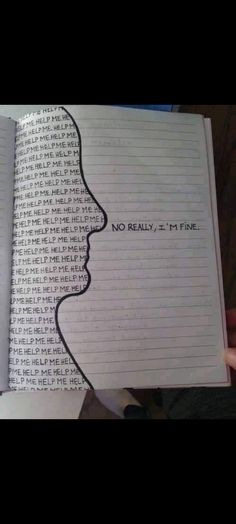 HELP ME
HELP ME HELP
HELP ME HELP M
HELP ME HELP ME
HELP ME HELP ME
HELP ME HELP ME
HELP ME HELP ME
HELP ME HELP ME
HELP ME HELP ME
HELP ME HELP ME H
HELP ME HELP ME HE
HELP ME HELP ME HELP
HELP ME HELP ME HELP
NO REALLY, I'M FINE.
HELP ME HELP ME HE
HELP ME HELP ME HE
HELP ME HELP ME HE
HELP ME HELP ME HE
HELP ME HELP ME H
HELP ME HELP ME
HELP ME HELP
HELP ME HELP
HELP ME HELP
HELP ME HELP ME
HELP ME HELP ME
HELP ME HELP ME HE
HELP ME HELP ME HELP